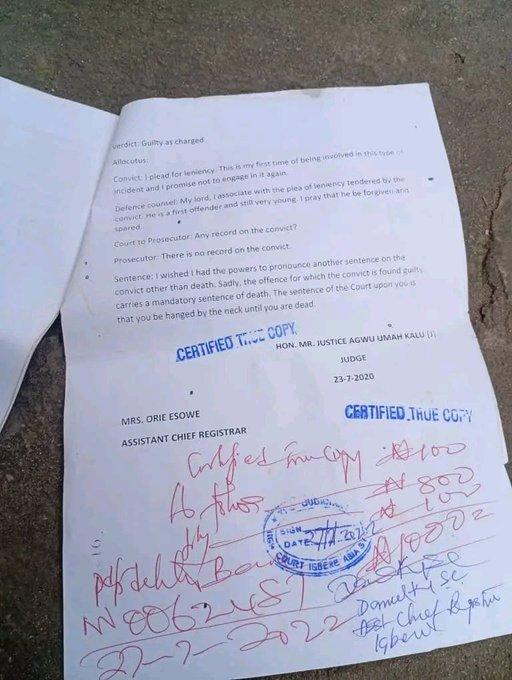 verdict: Guilty as charged.
Allocutus:
Convict: I plead for leniency. This is my first time of being involved in this type of
incident and I promise not to engage in it again.
Defence counsel: My lord, I associate with the plea of leniency tendered by the
convict. He is a first offender and still very young. I pray that he be forgiven and
spared.
Court to Prosecutor: Any record on the convict?
Prosecutor: There is no record on the convict.
Sentence: I wished I had the powers to pronounce another sentence on the
convict other than death. Sadly, the offence for which the convict is found guilty
carries a mandatory sentence of death. The sentence of the Court upon you is
that you be hanged by the neck until you are dead.
CERTIFIED TRUE COPY
HON. MR. JUSTICE AGWU UMAH KALU (J)
JUDGE
23-7-2020
MRS. ORIE ESOWE
ASSISTANT CHIEF REGISTRAR
CERTIFIED TRUE COPY
Certified True Copy ₦100
₦800
₦100
SIGN
DATE
COURT IGBERE ABIA
27-7-2022
Asst Chief Registrar
Igbere